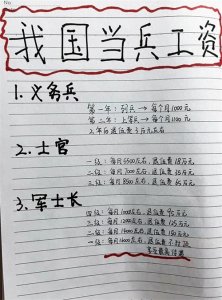 No
我国当兵工资
1.义务兵
第一年：列兵→每个月1000元
第二年：上等兵→每个月1100元
2年后退伍费5万元左右
2.士官
一级：每月5500左右，退伍费18万元
二级：每月7000左右，退伍费35万元
三级：每月8500左右，退伍费65万元
3.军士长
四级：每月10000左右，退伍费90万元
二级：每月14000左右，退伍费150万元
一级：每月16000左右，退伍费不封顶
享受最高待遇